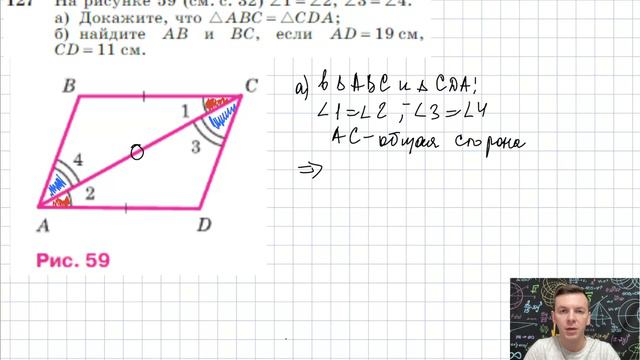 127 На рисунке 59 (см. с. 32) ∠1=∠2, ∠3=∠4.
а) Докажите, что △ABC=△CDA;
б) найдите AB и BC, если AD=19 см,
CD=11 см.
B
C
1
3
4
2
A
D
Рис. 59
а) в △ABC и △CDA:
∠1=∠2 ; ∠3=∠4
AC-общая сторона
⇒